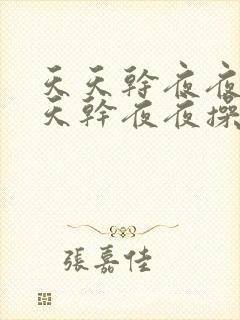 天天幹夜夜
天幹夜夜操
張嘉佳